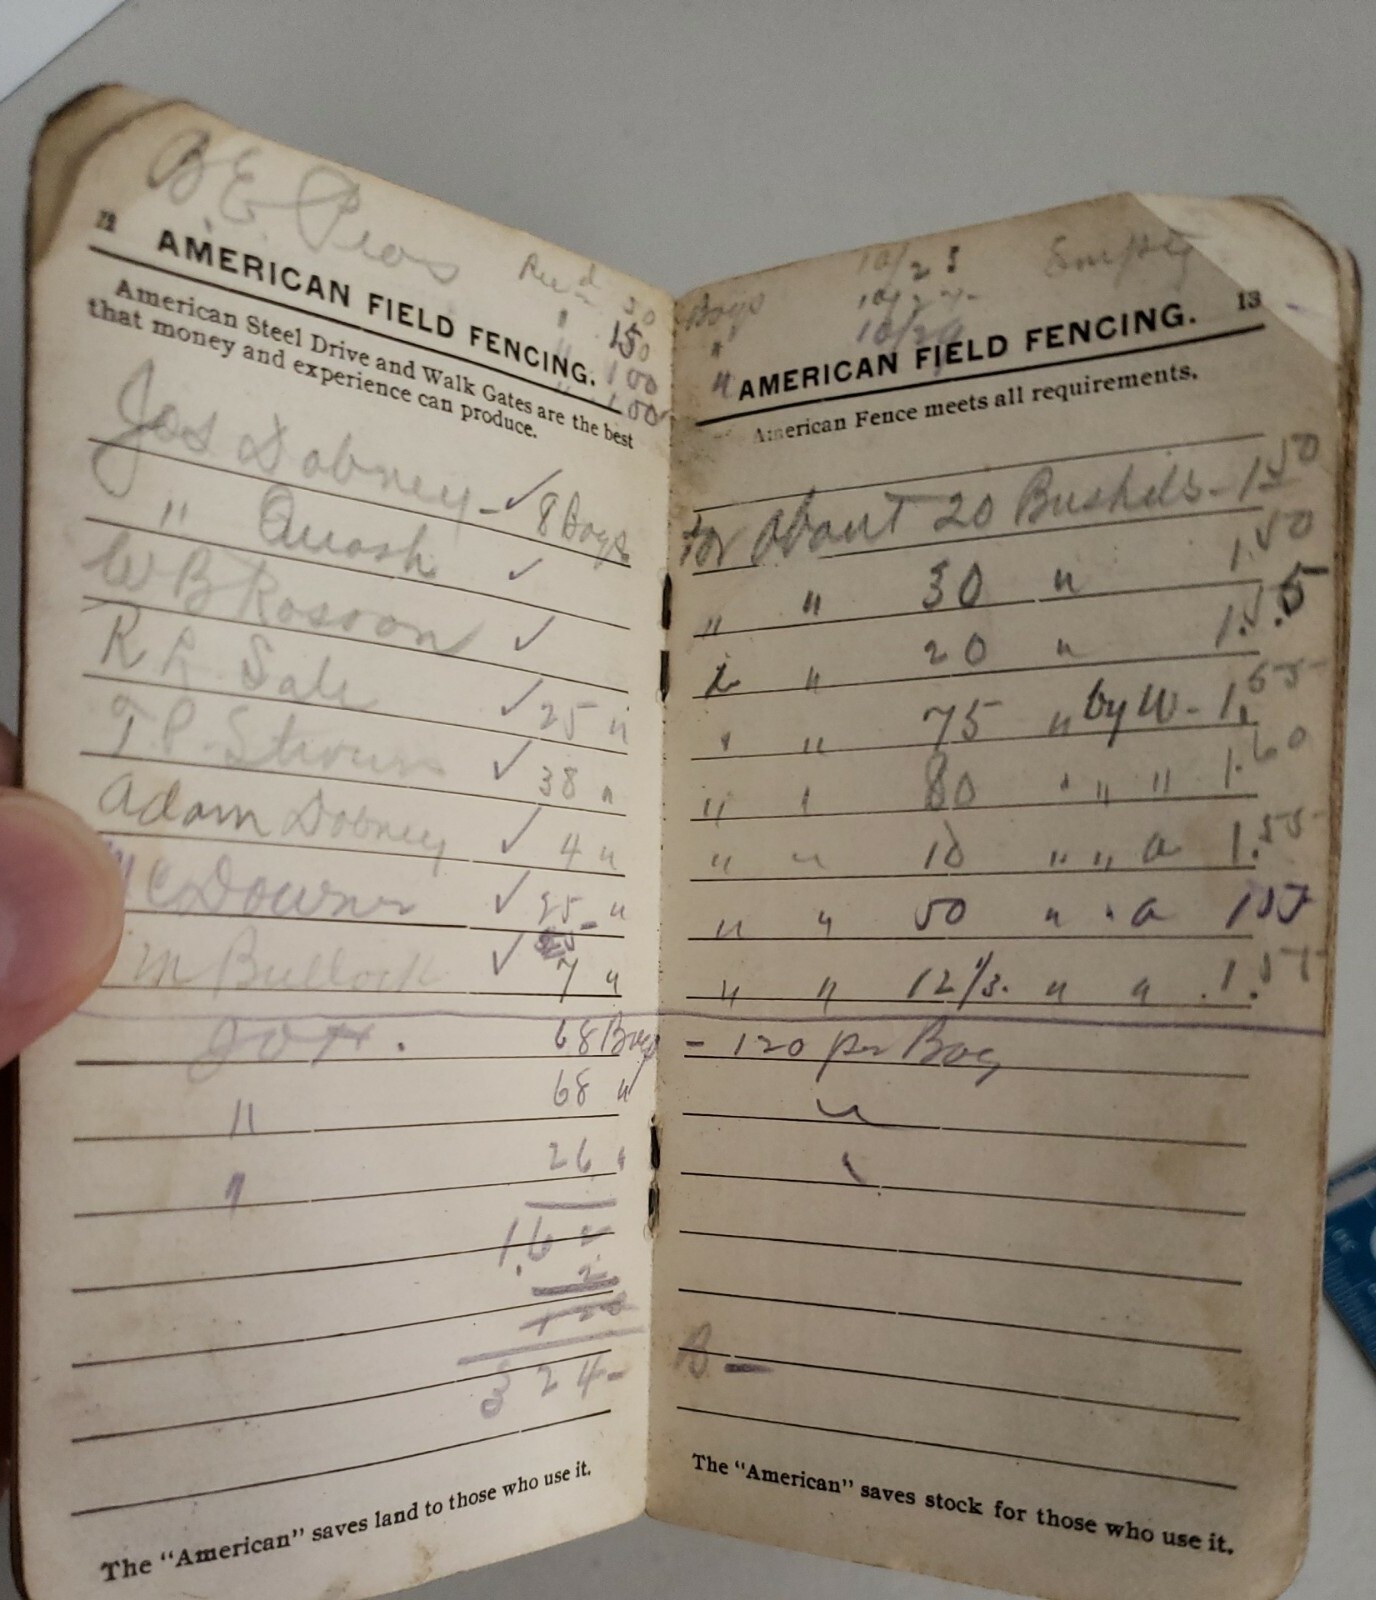 B.E. Peas
12
AMERICAN FIELD FENCING.
American Steel Drive and Walk Gates are the best
that money and experience can produce.
Rec'd 30
" 150
" 100
" 100
Jos Dabney - ✓ 8 Bags
" Quash ✓
W B ✓
R L Sale ✓ 25 "
T P ✓ 38 "
Adam Dabney ✓ 4 "
✓ 25 "
M Bullock ✓ 7 "
68 Bags
" 68 "
" 26 "
1.62
2
324-
The "American" saves land to those who use it.
Bags 10/23 Empty
" 10/24
" 10/29
13
AMERICAN FIELD FENCING.
American Fence meets all requirements.
for about 20 Bushels - 1.50
" " 30 " 1.50
" 20 " 1.55
" " 75 " by W - 1.65
" " 80 " " " 1.60
" " 10 " " a 1.55
" " 50 " " a 155
" " 12 1/3. " " 1.55
- 120 per Bag
"
"
B -
The "American" saves stock for those who use it.